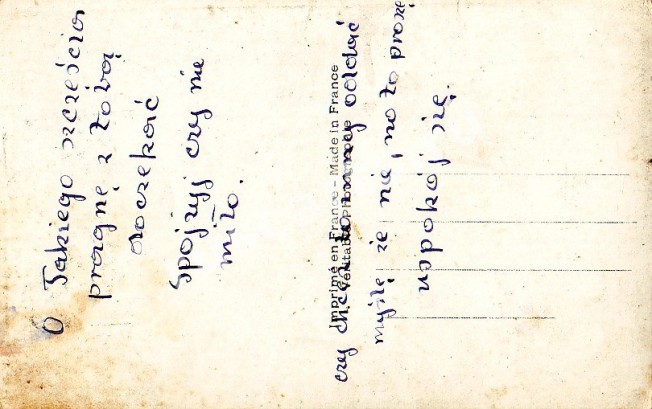 O Takiego szcześcia
pragnę z Tobą
doczekać
Spojrzyj czy nie
miło.
Imprimé en France - Made in France
Véritable Photographie
czy chcesz innej oddać
myślę że nie, no to proszę
uspokój się.